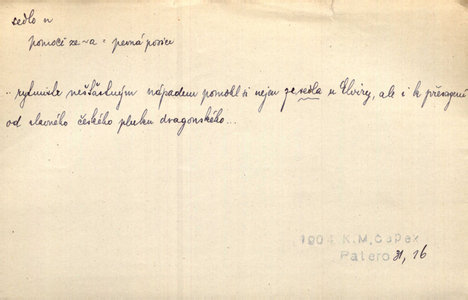 sedlo n
pomoci ze ~a = pevná posice
.. rytmistr nešťastným nápadem pomohl si nejen ze sedla u Elviry, ale i k přesazení
od slavného českého pluku dragonského...
1904 K.M.Čapek
Patero 31, 16